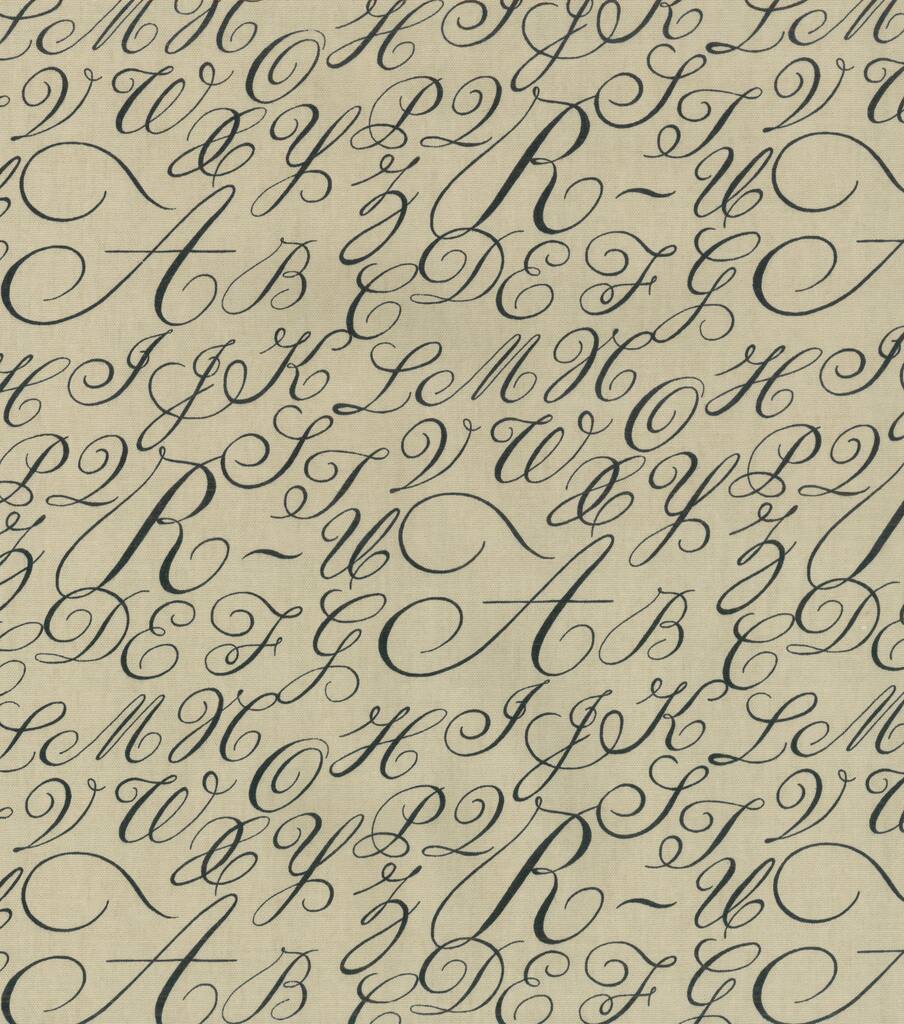 L M N O H I J K L M
V W X Y P Q R S T V W
Z ~ U
A B C D E F G
H I J K L M N O H I
P Q R S T V W X Y P Q R
Z ~ U Z
D E F G A B C D E
L M N O H I J K L M
V W X Y P Q R S T V W
Z ~ U
A B C D E F G